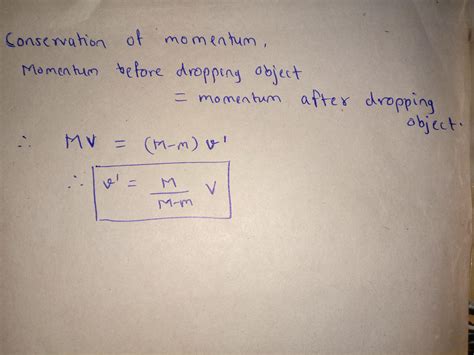 Conservation of momentum,
Momentum before dropping object
= momentum after dropping object.
∴ MV = (M-m) v'
∴ v' = M/M-m V